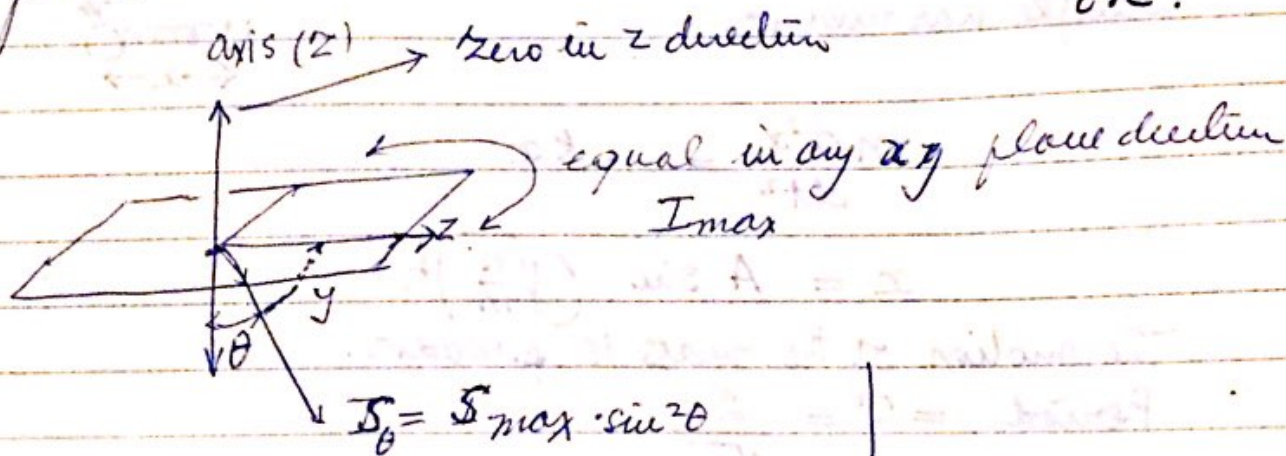 axis (Z) → Zero in z direction
equal in any xy plane direction
Imax
z
y
θ
S_θ = S max · sin²θ